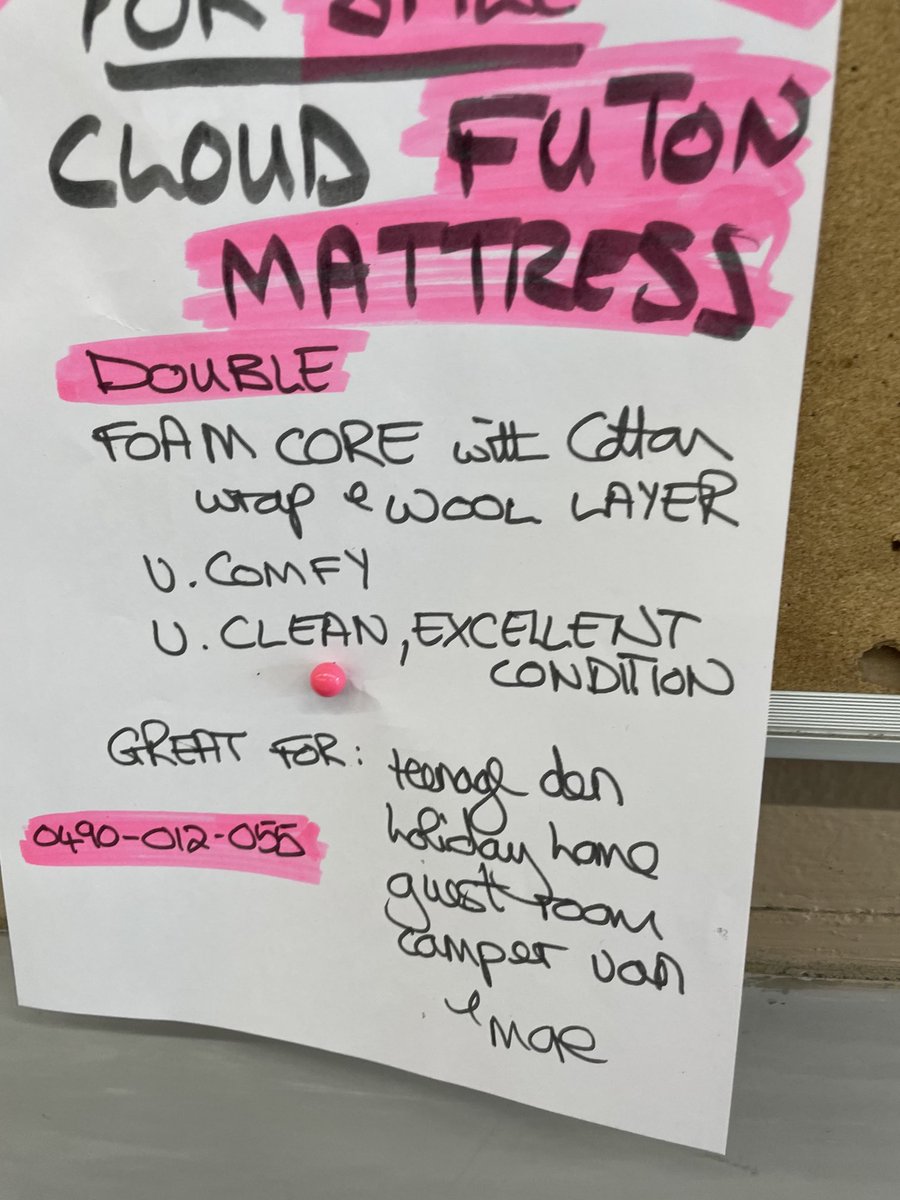 FOR SALE
CLOUD FUTON
MATTRESS
DOUBLE
FOAM CORE with Cotton
wrap & WOOL LAYER
V. COMFY
V. CLEAN, EXCELLENT
CONDITION
GREAT FOR: teenage den
holiday home
0490-012-055
guest room
camper van
& more